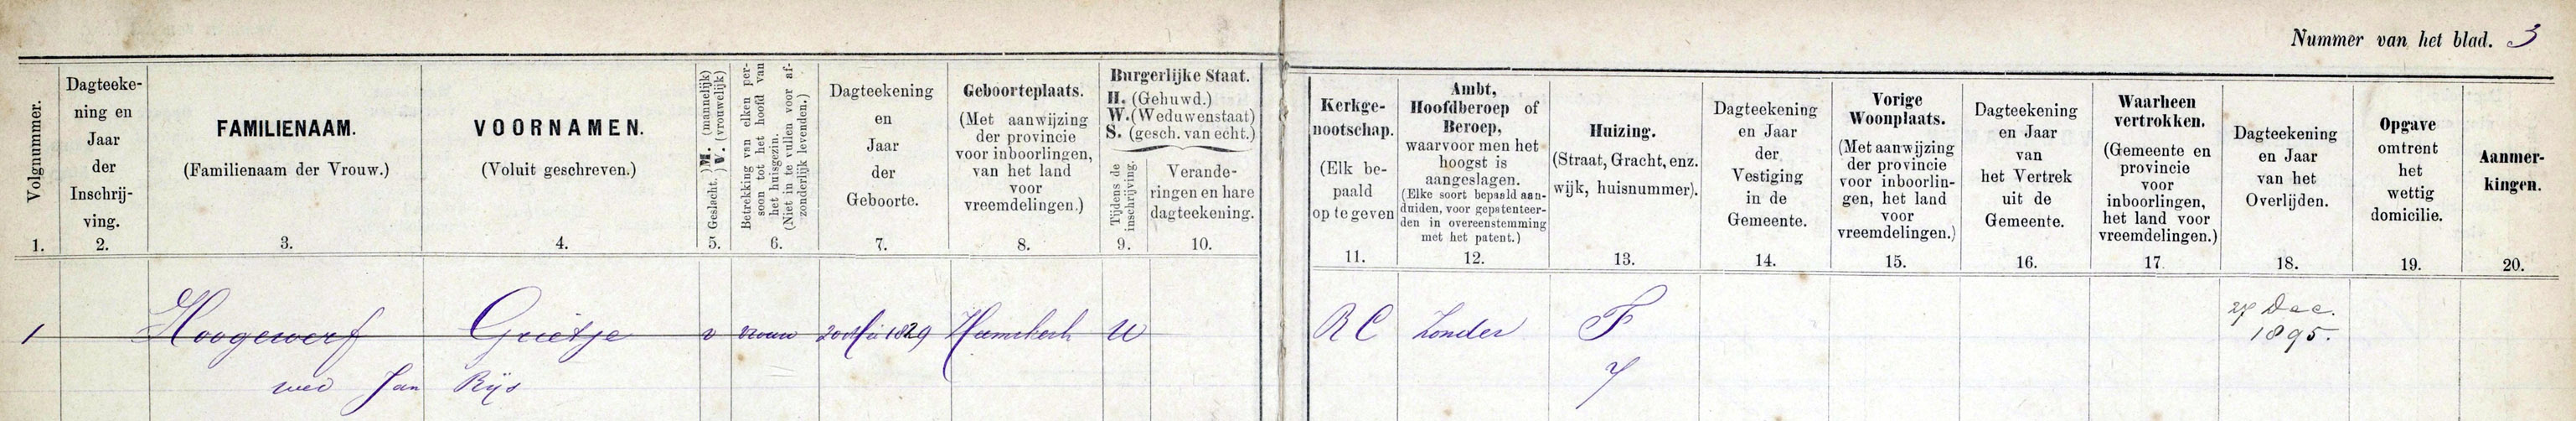 Nummer van het blad. 3
Volgnummer.
1.
Dagteeke-
ning en
Jaar
der
Inschrij-
ving.
2.
FAMILIENAAM.
(Familienaam der Vrouw.)
3.
VOORNAMEN.
(Voluit geschreven.)
4.
Geslacht. ) M. (mannelijk)
) V. (vrouwelijk)
5.
Betrekking van elken per-
soon tot het hoofd van
het huisgezin.
(Niet in te vullen voor af-
zonderlijk levenden.)
6.
Dagteekening
en
Jaar
der
Geboorte.
7.
Geboorteplaats.
(Met aanwijzing
der provincie
voor inboorlingen,
van het land
voor
vreemdelingen.)
8.
Burgerlijke Staat.
H. (Gehuwd.)
W. (Weduwenstaat)
S. (gesch. van echt.)
Tijdens de
inschrijving.
9.
Verande-
ringen en hare
dagteekening.
10.
Kerkge-
nootschap.
(Elk be-
paald
op te geven
11.
Ambt,
Hoofdberoep of
Beroep,
waarvoor men het
hoogst is
aangeslagen.
(Elke soort bepaald aan-
duiden, voor gepatenteer-
den in overeenstemming
met het patent.)
12.
Huizing.
(Straat, Gracht, enz.
wijk, huisnummer).
13.
Dagteekening
en Jaar
der
Vestiging
in de
Gemeente.
14.
Vorige
Woonplaats.
(Met aanwijzing
der provincie
voor inboorlin-
gen, het land
voor
vreemdelingen.)
15.
Dagteekening
en Jaar
van
het Vertrek
uit de
Gemeente.
16.
Waarheen
vertrokken.
(Gemeente en
provincie
voor
inboorlingen,
het land voor
vreemdelingen.)
17.
Dagteekening
en Jaar
van het
Overlijden.
18.
Opgave
omtrent
het
wettig
domicilie.
19.
Aanmer-
kingen.
20.
1 Hoogewerf Grietje v vrouw 20 Mei 1829 Heemskerk W R C Zonder F 27 Dec.
1895.
wed Jan Rijs 7